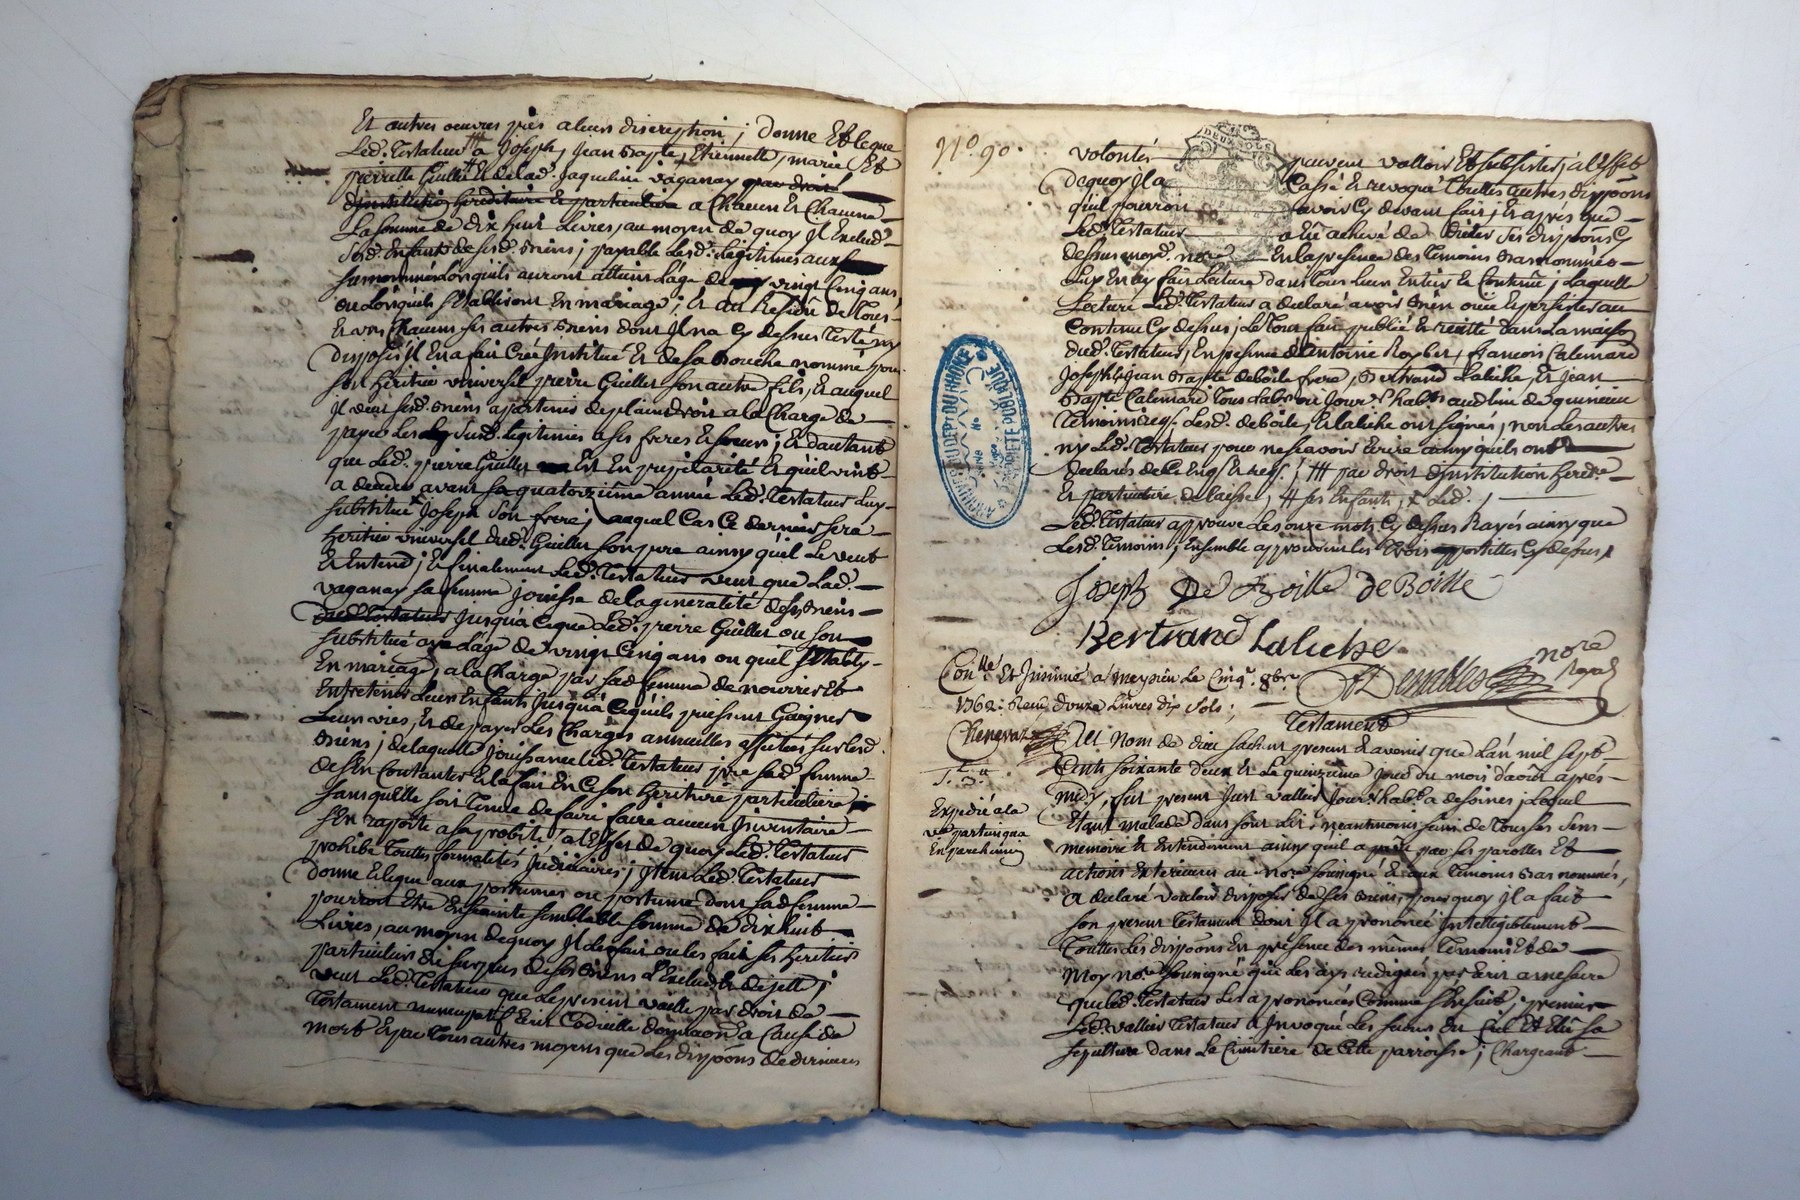 Et autres oeuvres pies a leur discreption ; Donne Et Legue
Led. Testateur a Joseph, Jean Bapte, Etiennette, marie Et
pierrette Guillet Et de lad. Jaqueline vaganay par droit
d'institution hereditaire Et particuliere a Chacun Et Chacune
La somme de dix huit Livres, au moyen de quoy Il Exclud
Sesd. Enfants de sesd. Biens ; payable Lesd. Legitimes aux
susnommés Lorsquils auront attaint L'age de vingt Cinq ans
ou Lorsquils s'Etabliront En mariage ; Et au Residu de Tous
Et uns Chacuns ses autres Biens dont Il na Cy dessus Testé ny
Disposé Il En a fait Créé Institué Et de sa Bouche nommé pour
son heritier universel pierre Guillet son autre fils, Et auquel
Il veut sesd. Biens apartenir de plain droit a la Charge de
payer Les susd. Legitimes a ses freres Et soeurs ; Et d'autant
que Led. pierre Guillet Est En pupilarité Et quil vint
a deceder avant sa quatorzieme année Led. Testateur Luy
substitue Joseph son frere ; auquel Cas Ce dernier sera
heritier universel dud. Guillet son pere ainsy quil Le veut
Et Entend ; Et finalement Led. Testateur veut que Lad.
vaganay sa femme jouisse de la generalité des Biens
dud. Testateur Jusqu'a Ceque Led. pierre Guillet ou son
substitué aye L'age de vingt Cinq ans ou quil s'Etably
En mariage, a la Charge par sad. femme de nourrir Et
Entretenir Leurs Enfants Jusqu'a Cequils puissent Gaigner
Leurs vies, Et de payer Les Charges annuelles assises sur Lesd.
Biens ; de laquelle Jouissance Led. Testateur prie sad. femme
de s'En Contanter Et La fait En Ce son heritiere particuliere
sans quelle soit Tenue de faire faire aucun Inventaire
s'En raporte a sa probité, a l'Effet de quoy Led. Testateur
prohibe Touttes formalités Judiciaires ; Item Led. Testateur
donne Et Legue aux postumes ou postume dont sad. femme
pourroit Etre Enceinte semblable somme de dix huit
Livres, au moyen de quoy Il Le fait ou les fait ses heritiers
particuliers du surplus de ses Biens L'Exclud Et dejette ;
veut Led. Testateur que Le present vaille par droit de
Testament nuncupatif Ecrit Codicille donnaon a Cause de
mort Et par Tous autres moyens que Les dispoons de dernieres
N° 90.
DEUX SOLS
volontés peuvent valloir Et subsister, a l'Effet
de quoy Il a Cassé Et revoqué Touttes autres dispoons
quil pourroit avoir Cy devant fait ; Et apres que
Led. Testateur a Eté achevé de dicter ses dispoons Cy
dessus moyd. nore En la presence des Temoins Bas nommés
Luy En ay fait Lecture dans Tout Leur Entier Et Contenu ; Laquelle
Lecture Led. Testateur a declaré avoir Bien ouie Et persister au
Contenu Cy dessus ; Le Tout fait publié Et recitté dans La maison
dud. Testateur, En presence d'antoine Roybet, francois Calemard
Joseph Et Jean Bapte de boile frere, Bertrand Labiche, Et Jean
Bapte Calemard Tous Lab. ou Jour. hab. aud. lieu de quincieu
Temoins req. Lesd. de boile, Et Labiche ont signés, non Les autres
ny Led. Testateur pour ne scavoir Ecrire ainsy quils ont
declarés de ce Enq. Et req. ; ### par droit d'institution heredre.
Et particuliere delaisse, # ses Enfants, + Led. ;
Led. Testateur approuve Les onze mots Cy dessus Rayés ainsy que
Lesd. Temoins, Ensemble approuvent Les Trois apostilles Cy dessus
Joseph De Boille deBoille
Bertrand Labiche
Desables nore Royal
Conlle Et Insinué a Meyzieu Le Cinq. 8bre
1762. Recu douze Livres dix sols ;
Chenevaz
Testament
Au Nom de dieu sachent present Et avenir que L'an mil sept
Cents soixante deux Et Le quinzieme jour du mois daout apres
midy, fut present Just vallier Jour. habt. a dessines, Lequel
Etant malade dans son Lit, neantmoins sain de Tous ses sens
memoire Et Entendement ainsy quil a parû par ses parolles Et
actions Exterieures au nore soussigné Et aux Temoins Bas nommés,
a declaré vouloir disposer de ses Biens, pourquoy Il a fait
son present Testament dont Il a prononcé Intelligiblement
Touttes Les dispoons En presence des mêmes Temoins Et de
moy nore soussigné qui Les ay redigées par Ecrit a mesure
que Led. Testateur Les a prononcées Comme s'Ensuit ; premier
Led. vallier Testateur a Invoqué Les secours du Ciel Et Elû sa
sepulture dans Le Cimitiere de Cette parroisse ; Chargeant
Expedié a la
ve partinqua
En parchemin
ARCHIVES DU DEPT DU RHONE
PROPRIETE PUBLIQUE